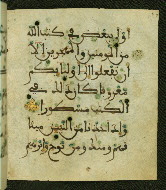 اولى ببعض في كتب الله
من المومنين والمهجرين الا
ان تفعلوا الى اوليايكم
معروفا كان ذلك في
الكتب مسطورا
واذ اخذنا من النبين ميثا
قهم ومنك ومن نوح وابرهيم